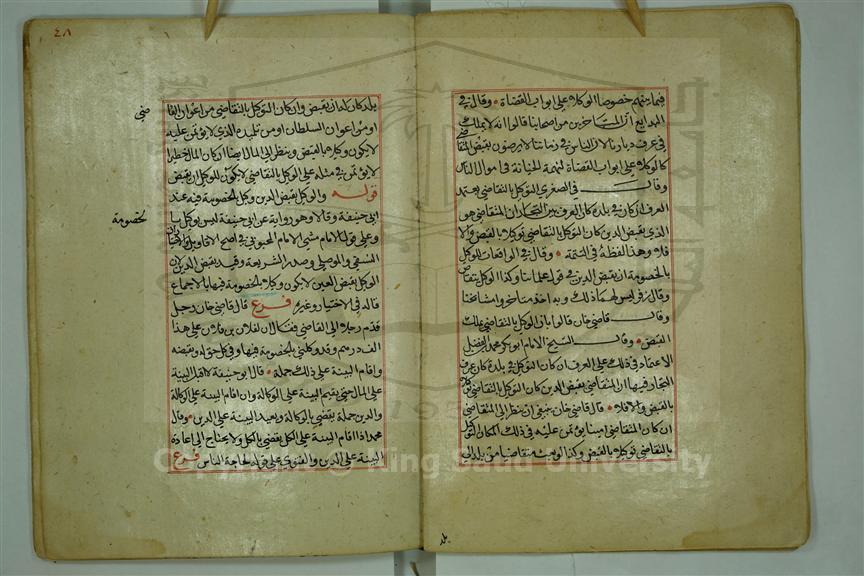 فيما بينهم خصوصا الوكلاء على ابواب القضاة وقال في
البدايع ان المتاخرين من اصحابنا قالوا انه لا يملك
في عرف ديارنا لان الناس في زماننا لا يرضون بقبض المتقاضي
كالوكلاء على ابواب القضاة لتهمة الخيانة في اموال الناس
وقال في الصغرى التوكيل بالتقاضي يعتمد
العرف ان كان في بلدة كان العرف بين التجار ان المتقاضي هو
الذي يقبض الدين كان التوكيل بالتقاضي توكيلا بالقبض والا
فلا وهذا لفظه في التتمة وقال في الواقعات للوكيل
بالخصومة ان يقبض الدين في قول علمائنا وكذا الوكيل بتقاض
وقال زفر ليس لهما ذلك وبه اخذ متاخروا مشايخنا
وقال قاضي خان قالوا بان الوكيل بالتقاضي يملك
القبض وقال الشيخ الامام ابو بكر محمد بن الفضل
الاعتماد في ذلك على العرف ان كان التوكيل في بلدة كان عرف
التجار فيها ان المتقاضي يقبض الدين كان التوكيل بالتقاضي توكيلا
بالقبض والا فلا قال قاضي خان ينبغي ان ينظر الى المتقاضي
ان كان المتقاضي امينا يؤتمن عليه في ذلك المكان التوكيل
بالتقاضي توكيلا بالقبض وكذا لو بعثه متقاضيا من بلد الى
بلد
٤٨
بلد كان له ان يقبض وان كان التوكيل بالتقاضي من اعوان القا
ضي
او من اعوان السلطان او من تلميذه الذي لا يؤتمن عليه
لا يكون وكيلا بالقبض وينظر الى المال ايضا ان كان المال خطرا
لا يؤتمن في مثله على الوكيل بالتقاضي لا يكون للوكيل ان يقبض
قوله والوكيل بقبض الدين وكيل بالخصومة فيه عند
ابي حنيفة وقالا وهو رواية عن ابي حنيفة ليس بوكيل با
لخصومة
وعلى قول الامام مشى الامام المحبوبي في اصح الاقاويل والاختيارات
النسفي والموصلي وصدر الشريعة وقيد بقبض الدين لان
الوكيل بقبض العين لا يكون وكيلا بالخصومة فيها بالاجماع
قاله في الاختيار وغيره فرع قال قاضي خان رجل
قدم رجلا الى القاضي فقال ان لفلان بن فلان على هذا
الف درهم وقد وكلني بالخصومة فيها وفي كل حق له وبقبضه
واقام البينة على ذلك جملة قال ابو حنيفة لا اقبل البينة
على المال حتى يقيم البينة على الوكالة وان اقام البينة على الوكالة
والدين جملة يقضي بالوكالة ويعيد البينة على الدين وقال
محمد اذا اقام البينة على الكل يقضي بالكل ولا يحتاج الى اعادة
البينة على الدين والفتوى على قوله لحاجة الناس فرع
Copyright © King Saud University